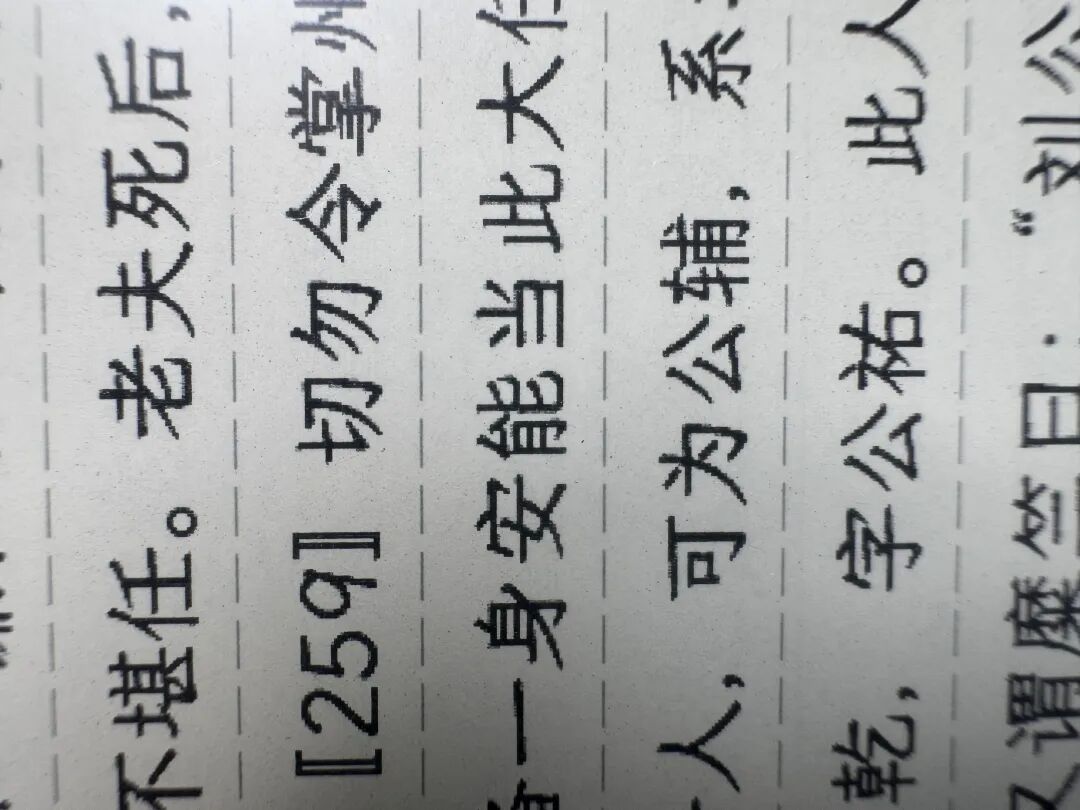 不堪任。老夫死后，
〖259〗切勿令掌州
一身安能当此大任
人，可为公辅，系
乾，字公祐。此人
又谓糜竺曰：“刘公